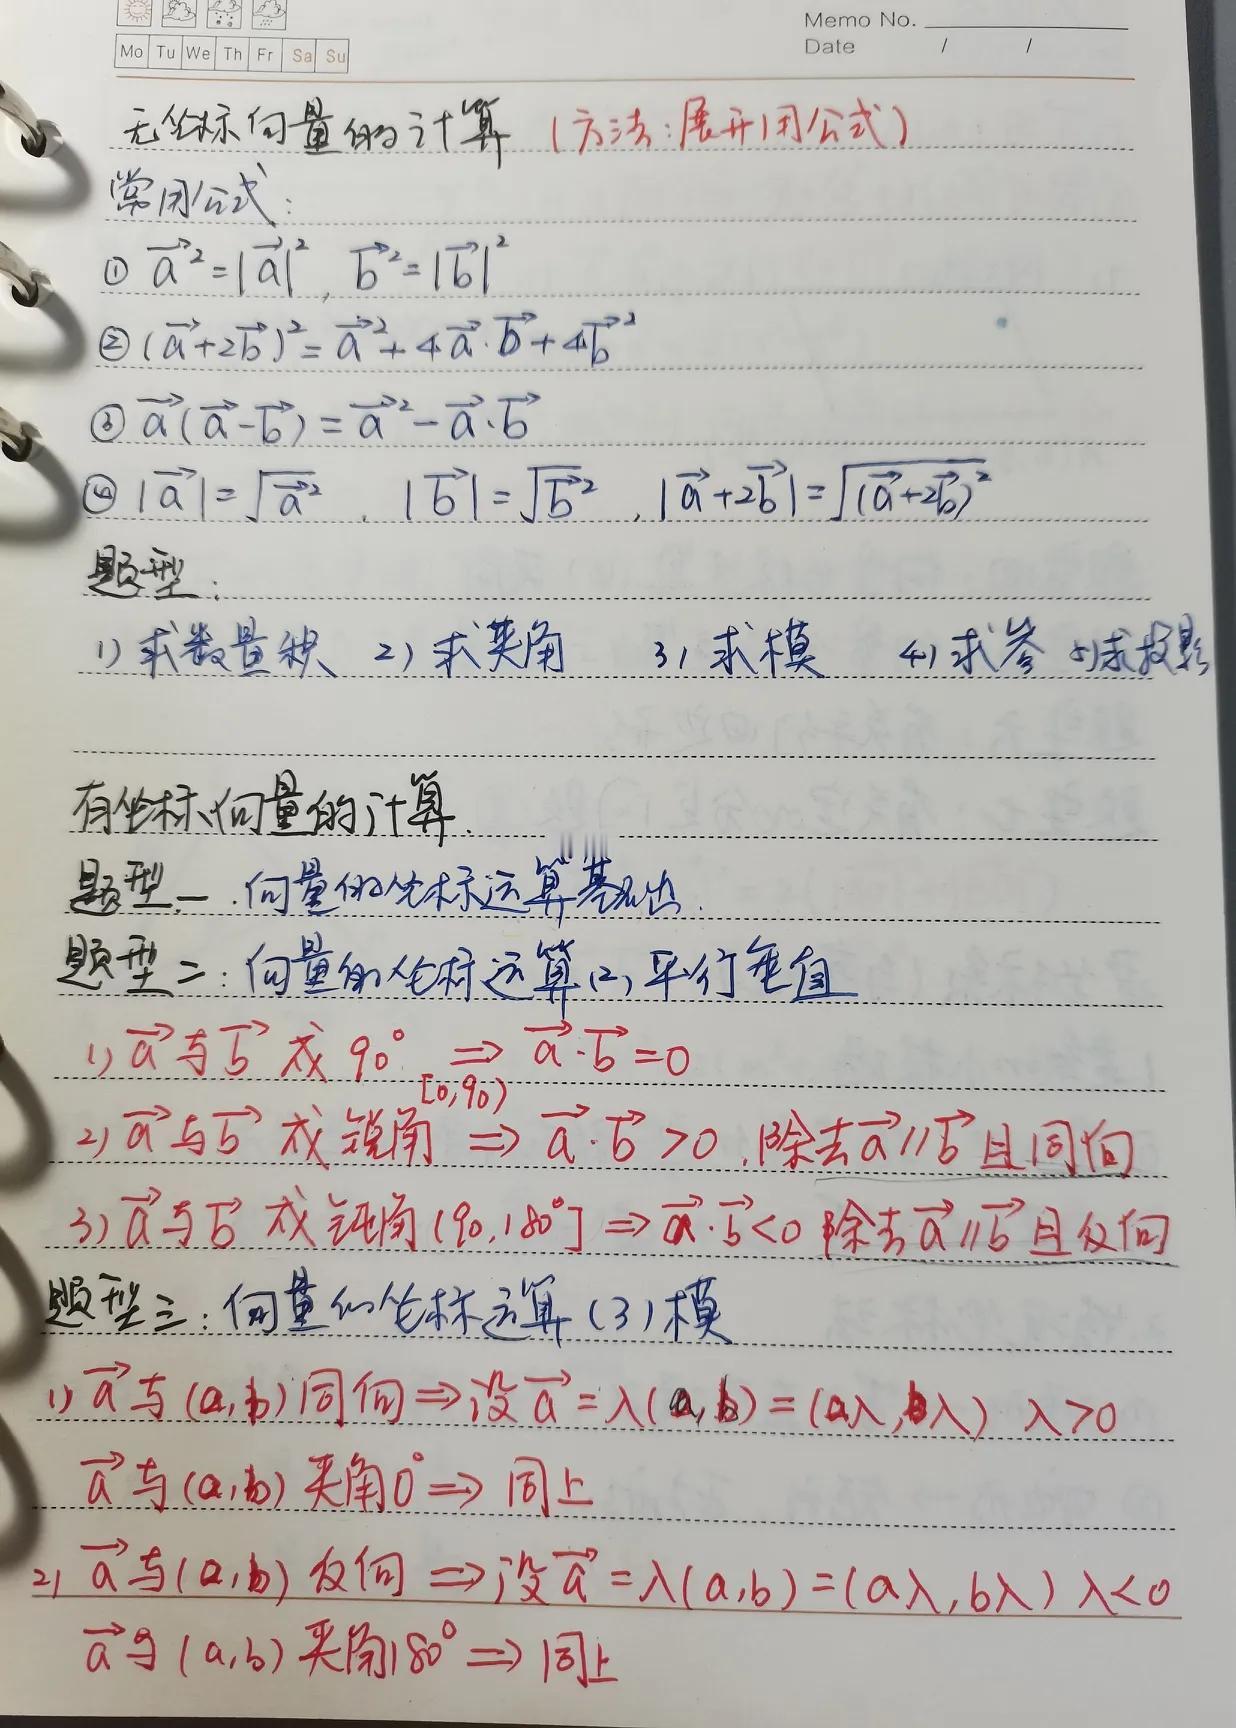 Memo No.
Mo Tu We Th Fr Sa Su
Date / /
无坐标向量的计算 (方法:展开用公式)
常用公式:
① a⃗²=|a⃗|², b⃗²=|b⃗|²
② (a⃗+2b⃗)²=a⃗²+4a⃗·b⃗+4b⃗²
③ a⃗(a⃗-b⃗)=a⃗²-a⃗·b⃗
④ |a⃗|=√a⃗², |b⃗|=√b⃗², |a⃗+2b⃗|=√(a⃗+2b⃗)²
题型:
1) 求数量积 2) 求夹角 3) 求模 4) 求参 5)求投影
有坐标向量的计算.
题型一.向量的坐标运算基础.
题型二:向量的坐标运算(2)平行垂直
1) a⃗与b⃗ 成 90° ⇒ a⃗·b⃗=0
[0,90)
2) a⃗与b⃗ 成 锐角 ⇒ a⃗·b⃗>0.除去a⃗∥b⃗且同向
3) a⃗与b⃗ 成 钝角(90,180°] ⇒ a⃗·b⃗<0 除去a⃗∥b⃗且反向
题型三:向量的坐标运算(3)模
1) a⃗与(a,b)同向⇒设a⃗=λ(a,b)=(aλ,bλ) λ>0
a⃗与(a,b)夹角0°⇒同上
2) a⃗与(a,b)反向⇒设a⃗=λ(a,b)=(aλ,bλ) λ<0
a⃗与(a,b)夹角180°⇒同上